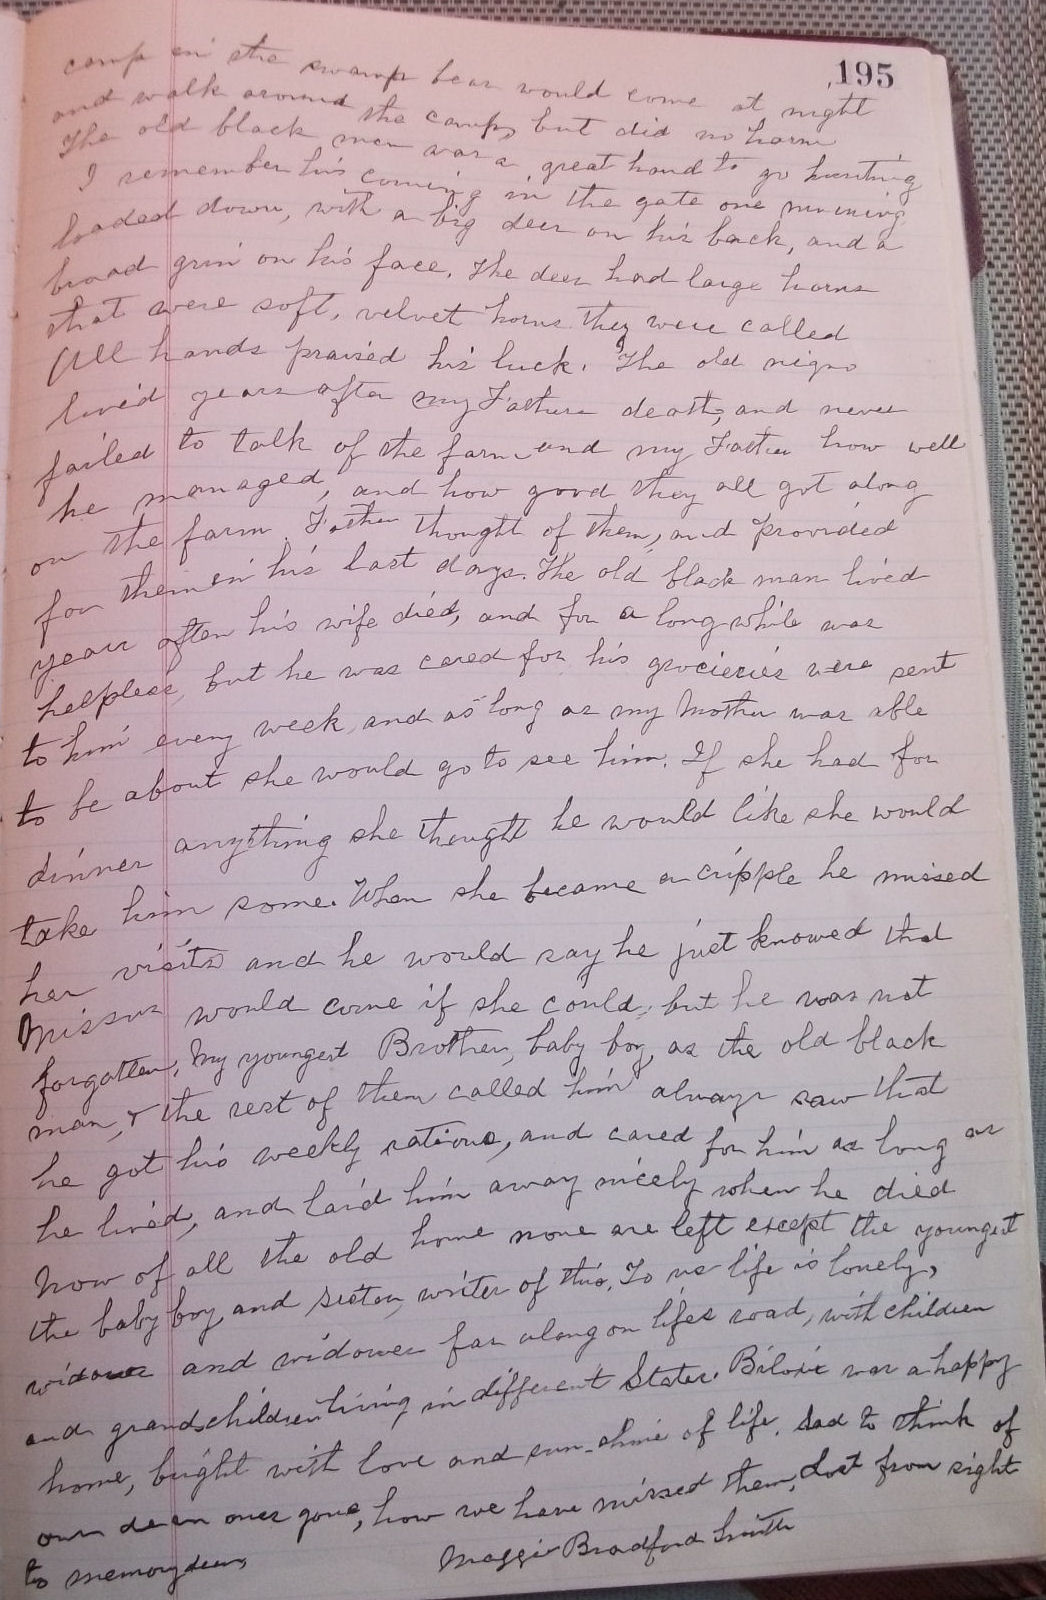 195
camp in the swamp bear would come at night
and walk around the camp, but did no harm
The old black man was a great hand to go hunting
I remember his coming in the gate one morning
loaded down, with a big deer on his back, and a
broad grin on his face. The deer had large horns
that were soft, velvet horns they were called
All hands praised his luck. The old negro
lived years after my Fathers death, and never
failed to talk of the farm and my Father how well
he managed, and how good they all got along
on the farm. Father thought of them, and provided
for them in his last days. The old black man lived
years after his wife died, and for a long while was
helpless, but he was cared for, his grocieries were sent
to him every week, and as long as my Mother was able
to be about she would go to see him. If she had for
dinner anything she thought he would like she would
take him some. When she became a cripple he missed
her visits and he would say he just knowed that
Missus would come if she could, but he was not
forgotten. My youngest Brother, baby boy, as the old black
man, & the rest of them called him always saw that
he got his weekly rations, and cared for him as long as
he lived, and laid him away nicely when he died
Now of all the old home none are left except the youngest
the baby boy, and sister, writer of this. To us life is lonely,
widow and widower far along on lifes road, with children
and grandchildren living in different States. Biloxi was a happy
home, bright with love and sun-shine of life. Sad to think of
our dear ones gone, how we have missed them, Lost from sight
to memory dear,
Maggie Bradford Smith